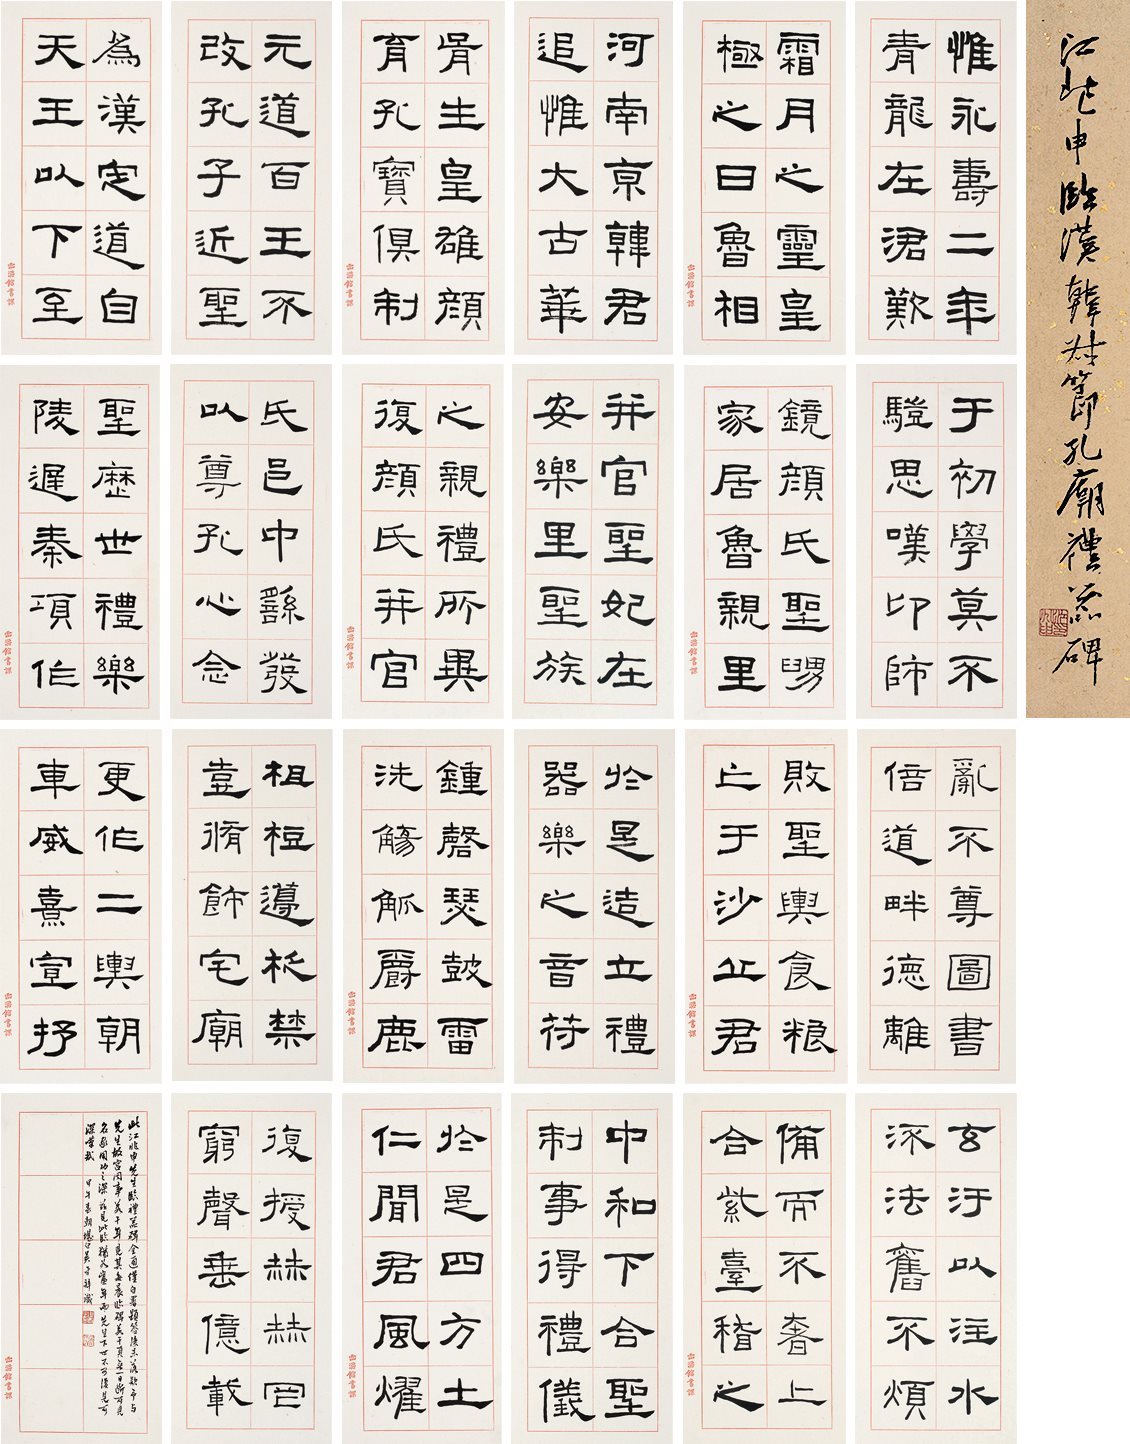 江兆申臨漢韓敕節孔廟禮器碑
惟永壽二年
青龍在涒歎
霜月之靈皇
極之日魯相
河南京韓君
追惟大古華
胥生皇雄顏
育孔寶俱制
元道百王不
改孔子近聖
為漢定道自
天王以下至
于初學莫不
驥思嘆卬師
鏡顏氏聖舅
家居魯親里
并官聖妃在
安樂里聖族
之親禮所異
復顏氏并官
氏邑中繇發
以尊孔心念
聖歷世禮樂
陵遲秦項作
亂不尊圖書
倍道畔德離
敗聖輿食糧
亡于沙丘君
於是造立禮
器樂之音苻
鍾磬瑟鼓雷
洗觴觚爵鹿
柤梪籩柉禁
壺脩飾宅廟
更作二輿朝
車威熹宣抒
玄汙以注水
流法舊不煩
備而不奢上
合紫臺稽之
中和下合聖
制事得禮儀
於是四方土
仁聞君風燿
復授赫赫罔
窮聲垂億載
此江兆申先生臨禮器碑全通僅自署題簽後未落款予與
先生故宮同事若干年見其每晨臨碑若干頁無一日斷可見
名家用功之深
深嘆哉